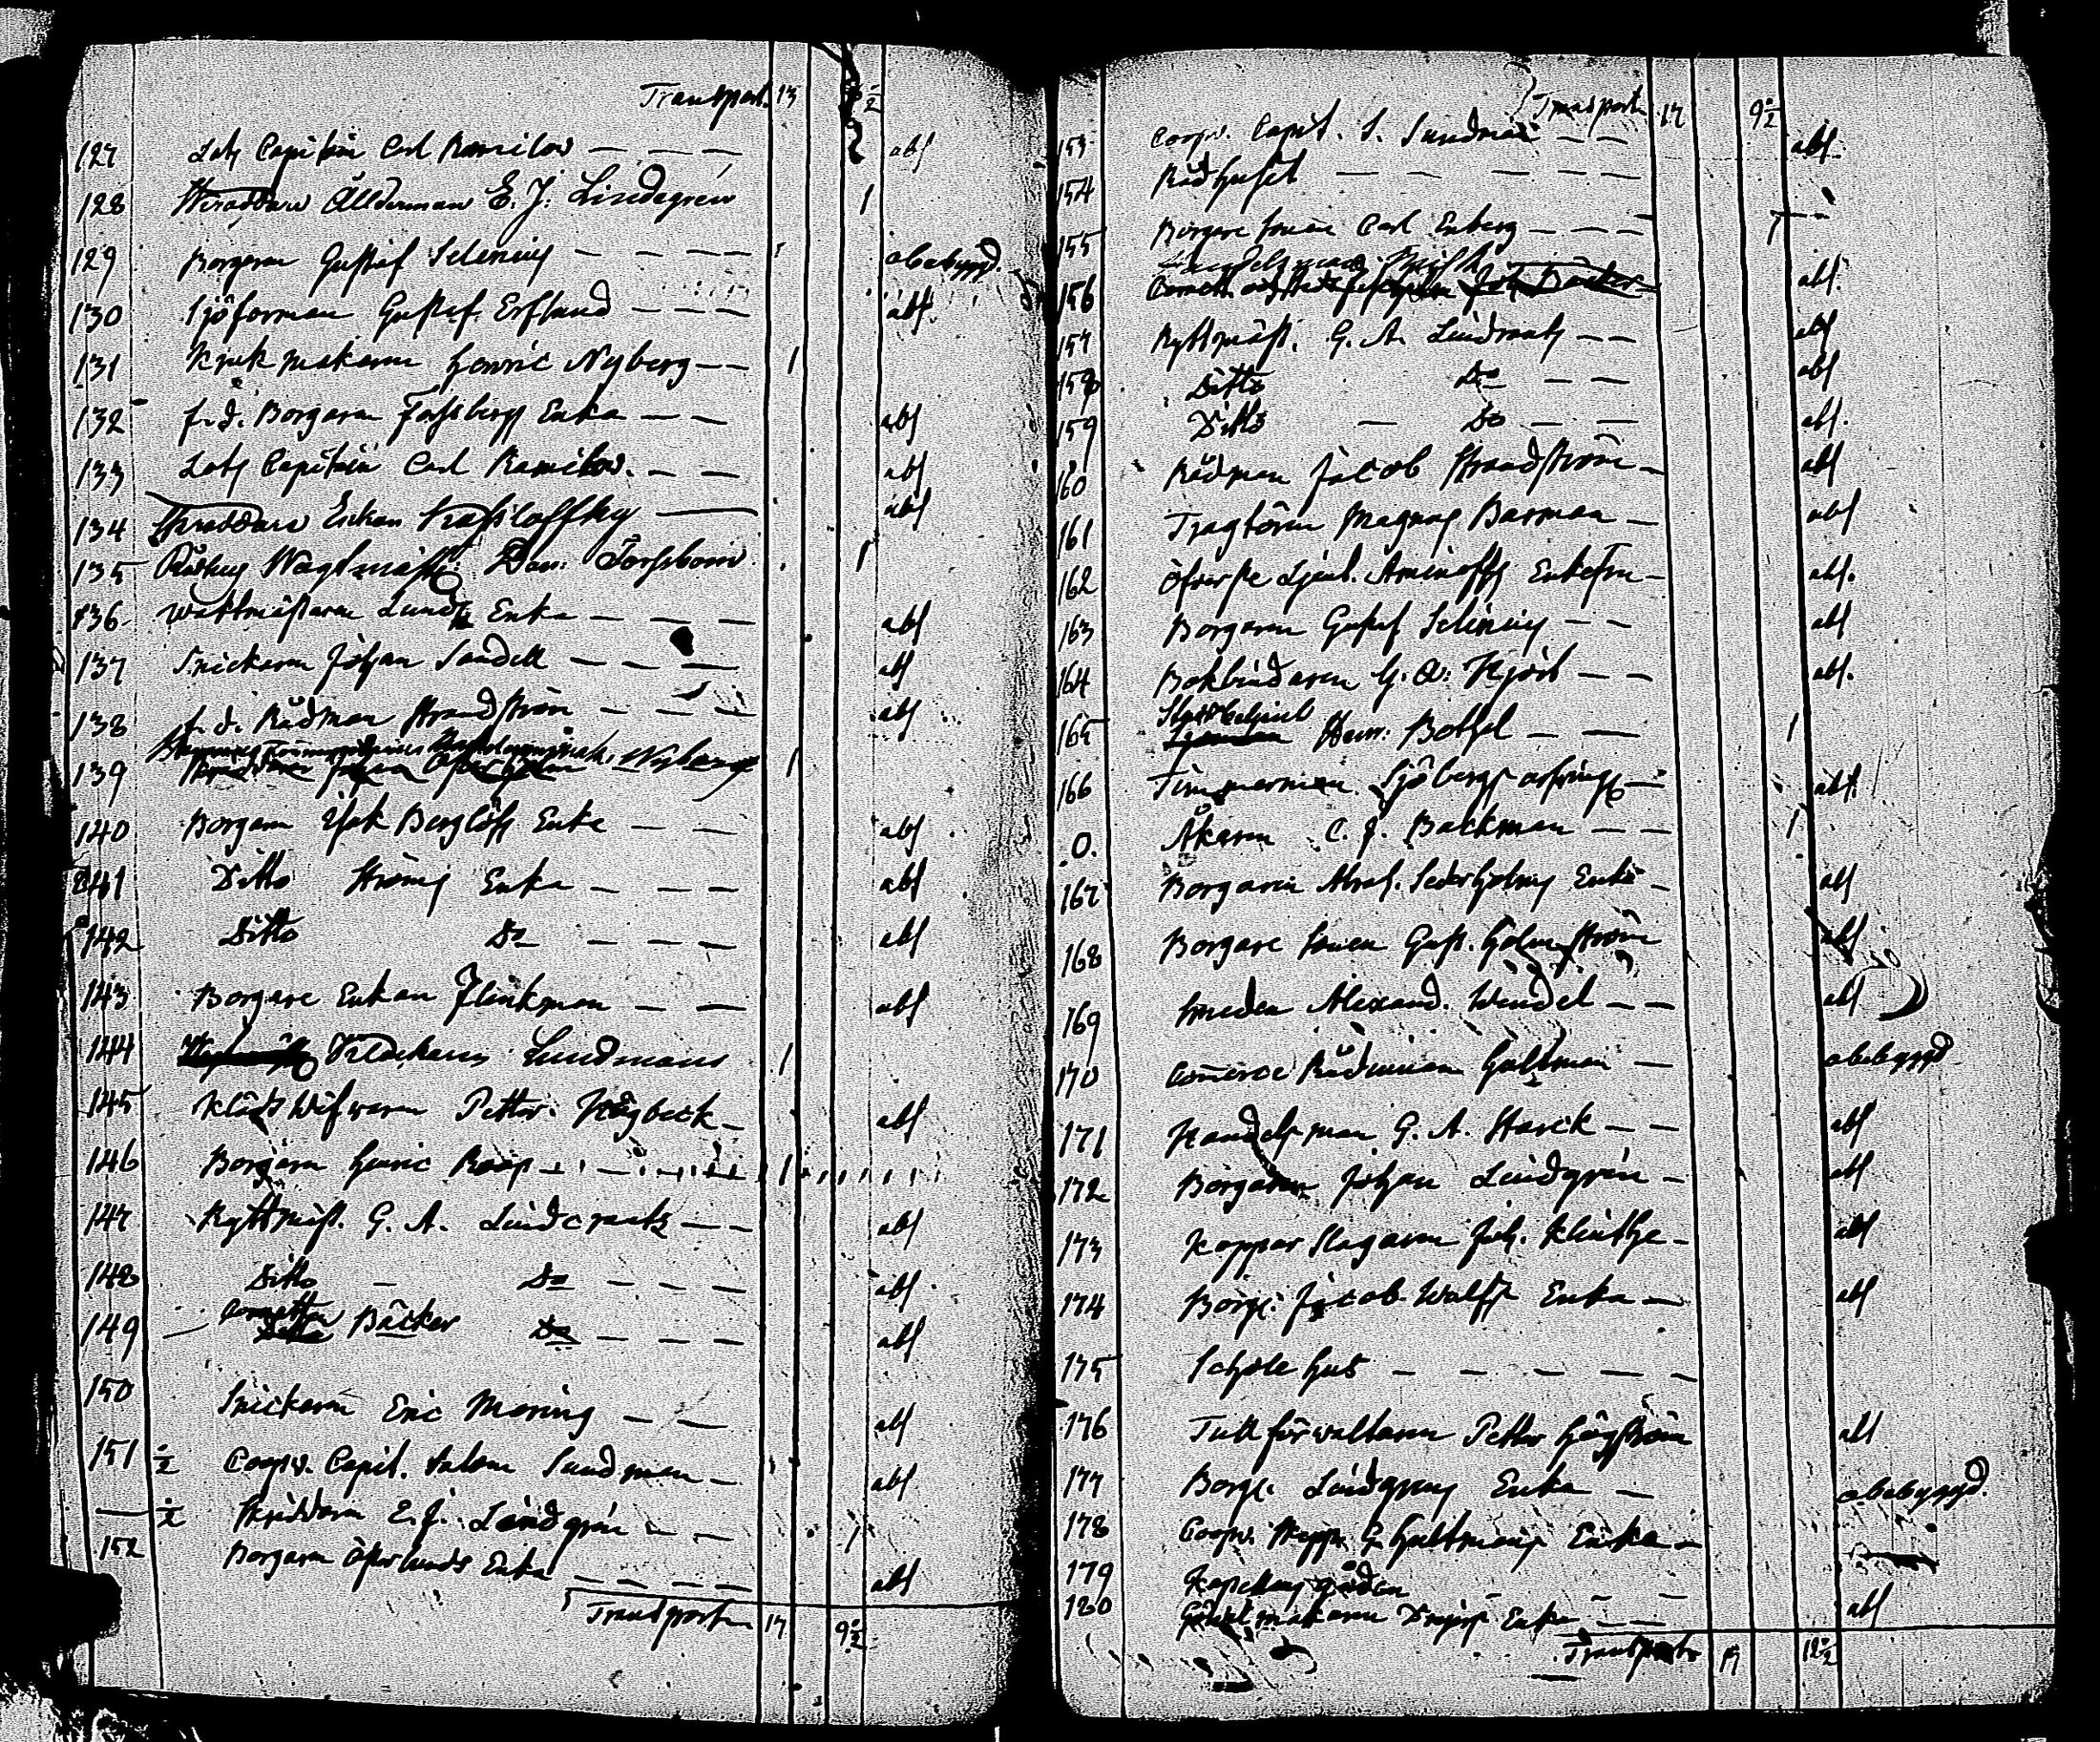 Transport 13
127 Capitain Carl Ramilow — — — abs
128 Ålderman E. J. Lindegren 1
129 Borgaren Gustaf Selenius — — — — obebyggd.
130 Sjöforman Gustaf Erslund — — — abs.
131 Krukmakaren Henric Nyberg — — 1
132 f. d. Borgaren Forssbergs Enka — — abs
133 Capitain Carl Ramilow. — — abs
134 Enkan — abs
135 Dan: Forssbom 1
136 Waktmästaren Lunds Enka — — — abs
137 Snickaren Johan Sandell — — — abs
138 f. d. Rådman Strandström — — — abs
139 Nyberg 1
140 Borgaren Isak Berglöfs Enka — — abs
141 Ditto Ströms Enka — — — abs
142 Ditto Do — — — abs
143 Borgare Enkan Flinkman — — abs
144 Sundmans 1
145 Petter Högbeck — abs
146 Borgaren Henric Roos — 1
147 Ryttmäst. G. A. Lindcrantz — — abs
148 Ditto — Do — — — abs.
149 Cornetten Bäcker Do — — — abs
150 Snickaren Eric Moring — — abs
151 ½ Coopv. Capit. Salom Sundman — abs
— ½ Skräddaren E. J. Lindgren — — 1
152 Borgaren Österlunds Enka — — — — abs
Transport 17 9½
Transport 17 9½
153 Coopv. Capit. S. Sundman — — abs.
154 Rådhuset — — — — —
155 Borgare Carl Enberg — — — 1
156 Handelsman abs.
157 Ryttmäst. G. A. Lindcrantz — — abs
158 Ditto Do — — abs
159 Ditto — Do — — abs.
160 Rådman Jacob Strandström — abs
161 Tragtören Magnus Barman — abs
162 Öfverste Lieut. Aminoffs Enkefru — abs.
163 Borgaren Gustaf Selenius — — abs
164 Bokbindaren G. A. Hjort — — abs.
165 Henr: Bothel — — 1
166 Timmerman Sjöbergs — abs.
0. Åkaren C. J. Backman — — 1
167 Borgaren Abrah. Sederholms Enka — abs
168 Borgare Gust. Holmström abs
169 Smeden Alexand. Windel — — abs
170 Comerce Rådman Hultman — obebyggd
171 Handelsman G. A. Starck — — abs
172 Borgaren Johan Lindgren — abs
173 Kopparslagaren Joh. Klinthe — abs
174 Borgs. Jacob Wulffs Enka — abs
175 Schole hus — — — — —
176 Tullförvaltaren Petter Högström abs
177 Borgs. Lindgrens Enka — obebyggd.
178 Coopv. Skepps. G. Hultmans Enka —
179 Kapellansgården — — —
180 Enka — — abs
Transport 19 12½